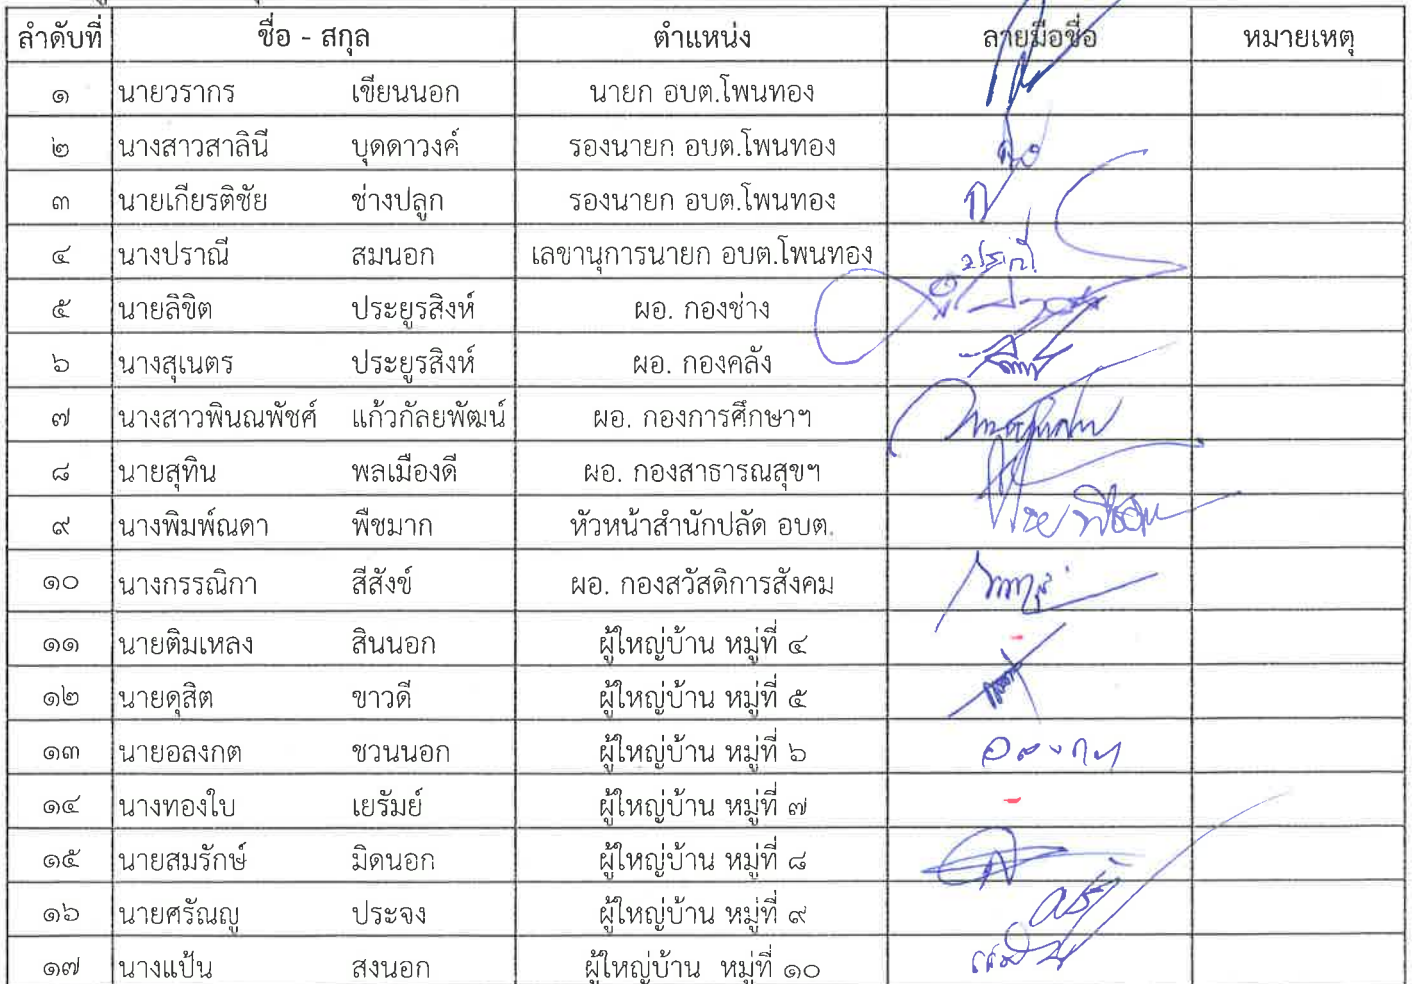 ลำดับที่ ชื่อ - สกุล ตำแหน่ง ลายมือชื่อ หมายเหตุ
๑ นายวรากร เขียนนอก นายก อบต.โพนทอง
๒ นางสาวสาลินี บุดดาวงค์ รองนายก อบต.โพนทอง
๓ นายเกียรติชัย ช่างปลูก รองนายก อบต.โพนทอง
๔ นางปราณี สมนอก เลขานุการนายก อบต.โพนทอง ปราณี
๕ นายลิขิต ประยูรสิงห์ ผอ. กองช่าง
๖ นางสุเนตร ประยูรสิงห์ ผอ. กองคลัง
๗ นางสาวพินณพัชศ์ แก้วกัลยพัฒน์ ผอ. กองการศึกษาฯ
๘ นายสุทิน พลเมืองดี ผอ. กองสาธารณสุขฯ
๙ นางพิมพ์ณดา พืชมาก หัวหน้าสำนักปลัด อบต.
๑๐ นางกรรณิกา สีสังข์ ผอ. กองสวัสดิการสังคม
๑๑ นายติมเหลง สินนอก ผู้ใหญ่บ้าน หมู่ที่ ๔ -
๑๒ นายดุสิต ขาวดี ผู้ใหญ่บ้าน หมู่ที่ ๕
๑๓ นายอลงกต ชวนนอก ผู้ใหญ่บ้าน หมู่ที่ ๖ อลงกต
๑๔ นางทองใบ เยรัมย์ ผู้ใหญ่บ้าน หมู่ที่ ๗ -
๑๕ นายสมรักษ์ มิดนอก ผู้ใหญ่บ้าน หมู่ที่ ๘
๑๖ นายศรัณญู ประจง ผู้ใหญ่บ้าน หมู่ที่ ๙
๑๗ นางแป้น สงนอก ผู้ใหญ่บ้าน หมู่ที่ ๑๐